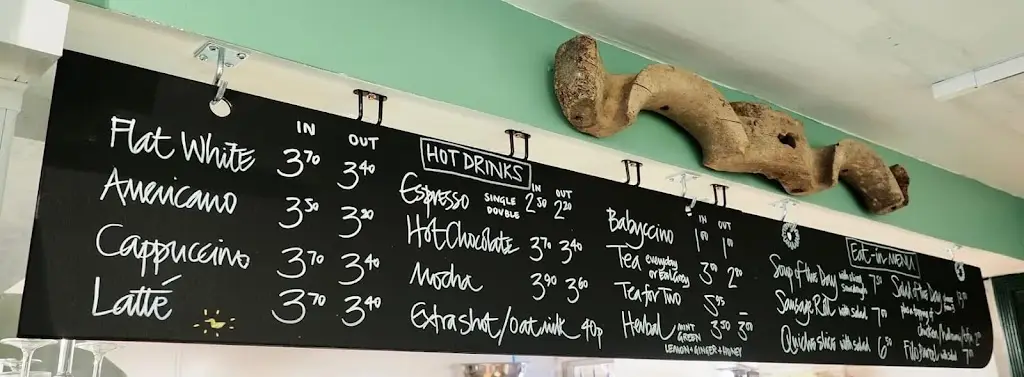 IN OUT
Flat White 3.70 3.40
Americano 3.50 3.20
Cappuccino 3.70 3.40
Latté 3.70 3.40
HOT DRINKS
IN OUT
Espresso SINGLE DOUBLE 2.50 2.20
Hot Chocolate 3.70 3.40
Mocha 3.90 3.60
Extra shot/oat milk 40p
IN OUT
Babyccino 1.00 1.00
Tea everyday or Earl Grey 3.00 2.80
Tea for Two 5.95 –
Herbal MINT GREEN 3.50 3.00
LEMON+GINGER+HONEY
Eat-in MENU
Soup of the Day with sliced Sourdough 7.50
Sausage Roll with salad 7.00
Quiche slice with salad 6.50
Salad of the Day
topping of
with salad